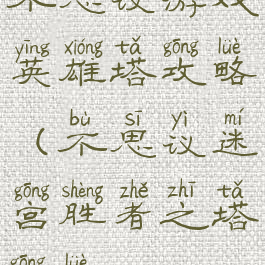 不思议游戏
yīng xióng tǎ gōng lüè
英雄塔攻略
bù sī yì mí
(不思议迷
gōng shèng zhě zhī tǎ
宫胜者之塔
gōng lüè